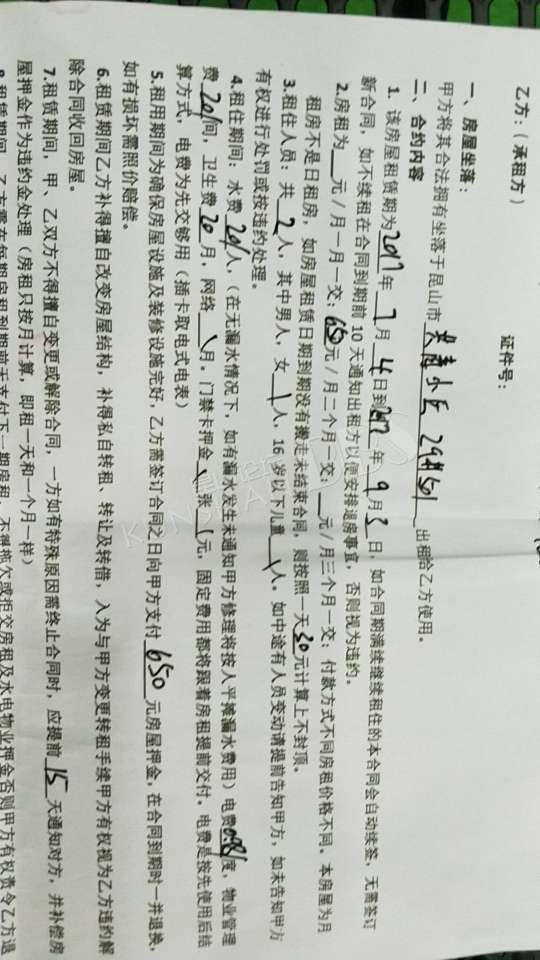 乙方：（承租方） 证件号：
一、房屋坐落：
甲方将其合法拥有坐落于昆山市 共青小区 29#501 出租给乙方使用。
二、合约内容
1. 该房屋租赁期为2017年7月4日到2017年9月3日，如合同期满续继续租住的本合同会自动续签，无需签订
新合同，如不续租在合同到期前 10 天通知出租方以便安排退房事宜，否则视为违约。
2.房租为__元/月一月一交；650元/月二个月一交；__元/月三个月一交；付款方式不同房租价格不同。本房屋为月
租房不是日租房，如房屋租赁日期到期没有搬走未结束合同，则按照一天30元计算上不封顶。
3.租住人员：共2人，其中男人，女\人，16 岁以下儿童\人。如中途有人员变动请提前告知甲方，如未告知甲方
有权进行处罚或按违约处理。
4.租住期间：水费20/人，（在无漏水情况下，如有漏水发生未通知甲方修理将按人平摊漏水费用）电费0.98/度，物业管理
费20/间，卫生费20月，网络\月。门禁卡押金\张\元，固定费用都将跟着房租提前交付。电费是按先使用后结
算方式，电费为先交够用（插卡取电式电表）
5.租用期间为确保房屋设施及装修设施完好，乙方需签订合同之日向甲方支付650元房屋押金，在合同到期时一并退换，
如有损坏需照价赔偿。
6.租赁期间乙方补得擅自改变房屋结构，补得私自转租、转让及转借，入为与甲方变更转租手续甲方有权视为乙方违约解
除合同收回房屋。
7.租赁期间，甲、乙双方不得擅自变更或解除合同，一方如有特殊原因需终止合同时，应提前15天通知对方，并补偿房
屋押金作为违约金处理（房租只按月计算，即租一天和一个月一样）
8.租赁期间，乙方需在每期房租到期前天支付下一期房租，不得拖欠或拒交房租及水电物业押金否则甲方有权责令乙方退